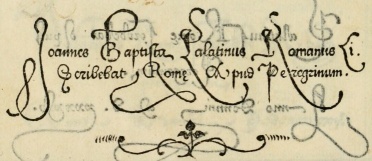 Ioannes Baptista Palatinus Romanus Ci.
Scribebat Romę Apud Peregrinum.